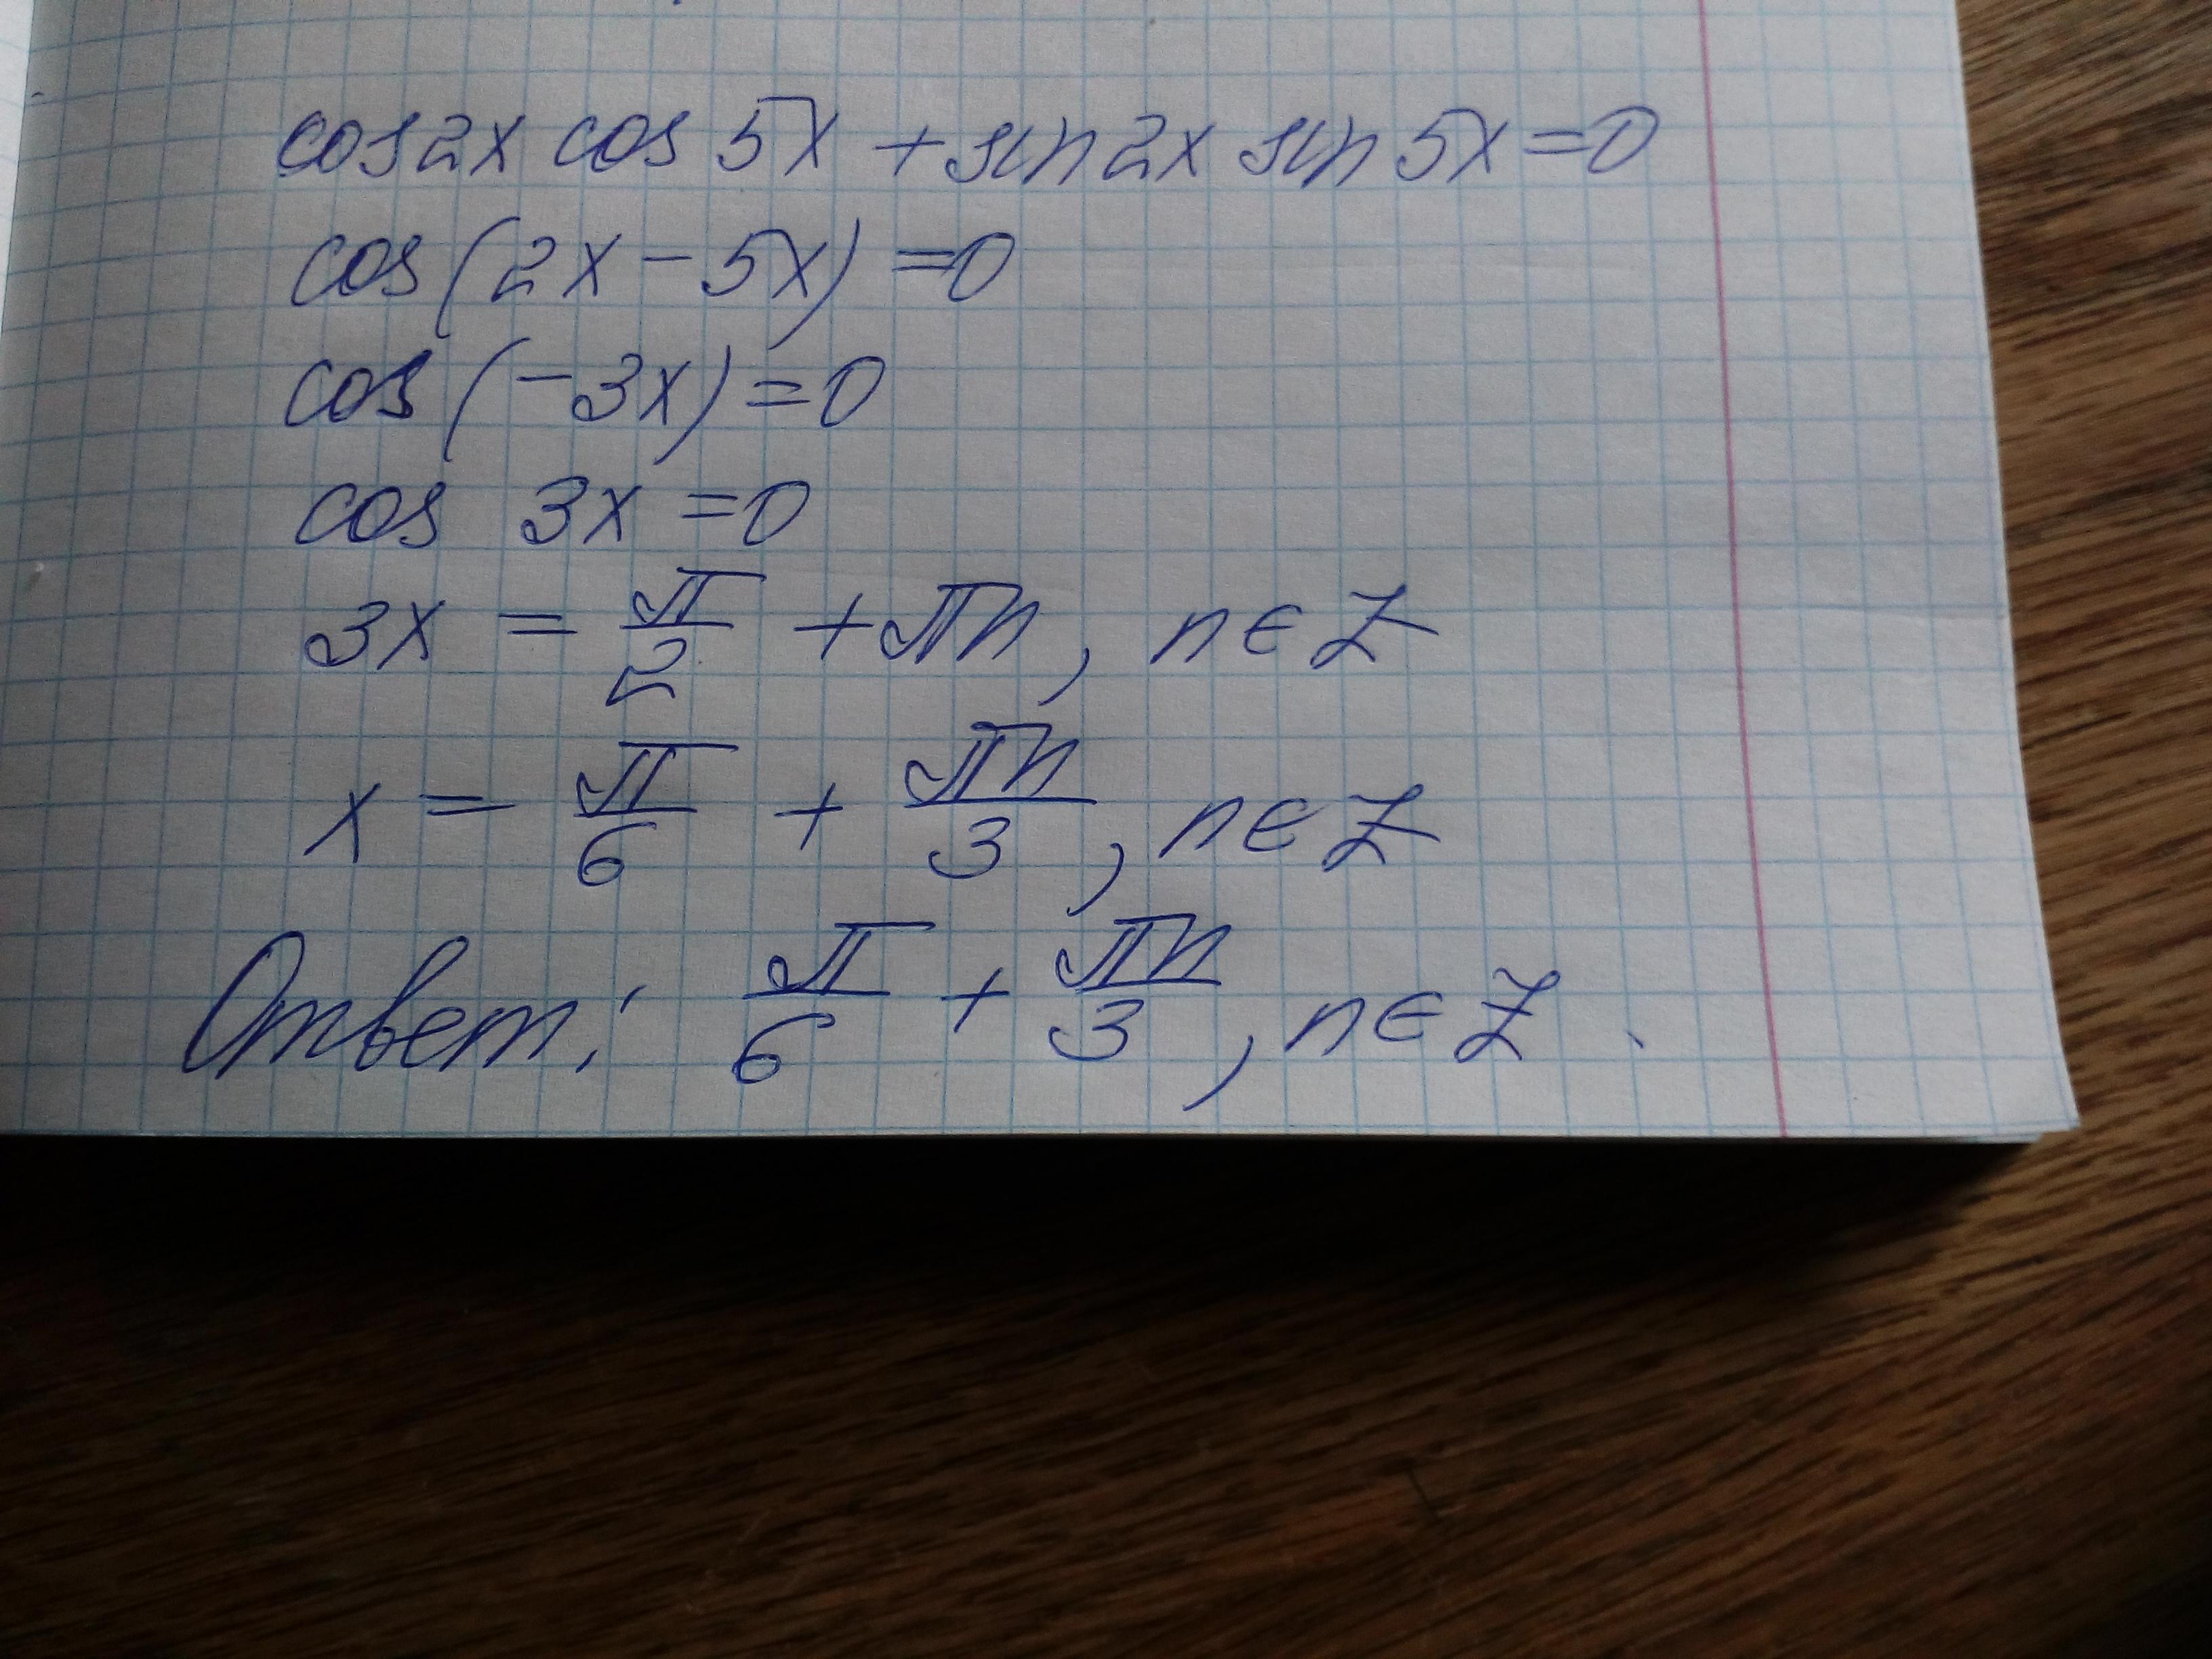 cos2x cos 5x + sin2x sin 5x = 0
cos(2x - 5x) = 0
cos(-3x) = 0
cos 3x = 0
3x = π/2 + πn, n∈Z
x = π/6 + πn/3, n∈Z
Ответ: π/6 + πn/3, n∈Z.